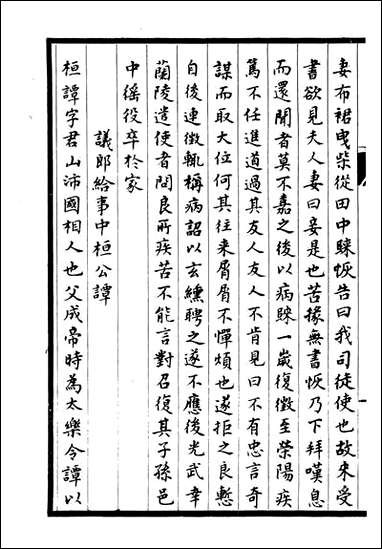 妻布裙曳柴從田中歸恢告曰我司徒使也故來受
書欲見夫人妻曰妾是也苦掾無書恢乃下拜嘆息
而還聞者莫不嘉之後以病歸一歲復徵至滎陽疾
篤不任進道過其友人友人不肯見曰不有忠言奇
謀而取大位何其往来屑屑不憚煩也遂拒之良慙
自後連徵輒稱病詔以玄纁聘之遂不應後光武幸
蘭陵遣使者問良所疾苦不能言對召復其子孫邑
中徭役卒於家
議郎給事中桓公譚
桓譚字君山沛國相人也父成帝時為太樂令譚以